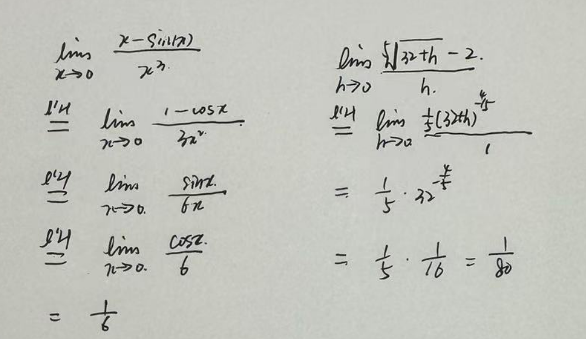 lim x→0 (x - sin(x))/x³
l'H = lim x→0 (1 - cosx)/3x²
l'H = lim x→0. sinx/6x
l'H = lim x→0. cosx/6
= 1/6
lim h→0 (⁵√(32+h) - 2.)/h.
l'H = lim h→0 (1/5 (32+h)^(-4/5))/1
= 1/5 · 32^(-4/5)
= 1/5 · 1/16 = 1/80